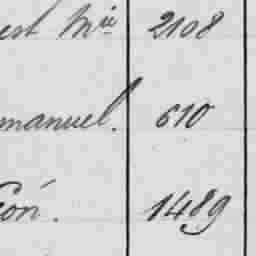 est M^rie 2108
manuel. 610
eón. 1489